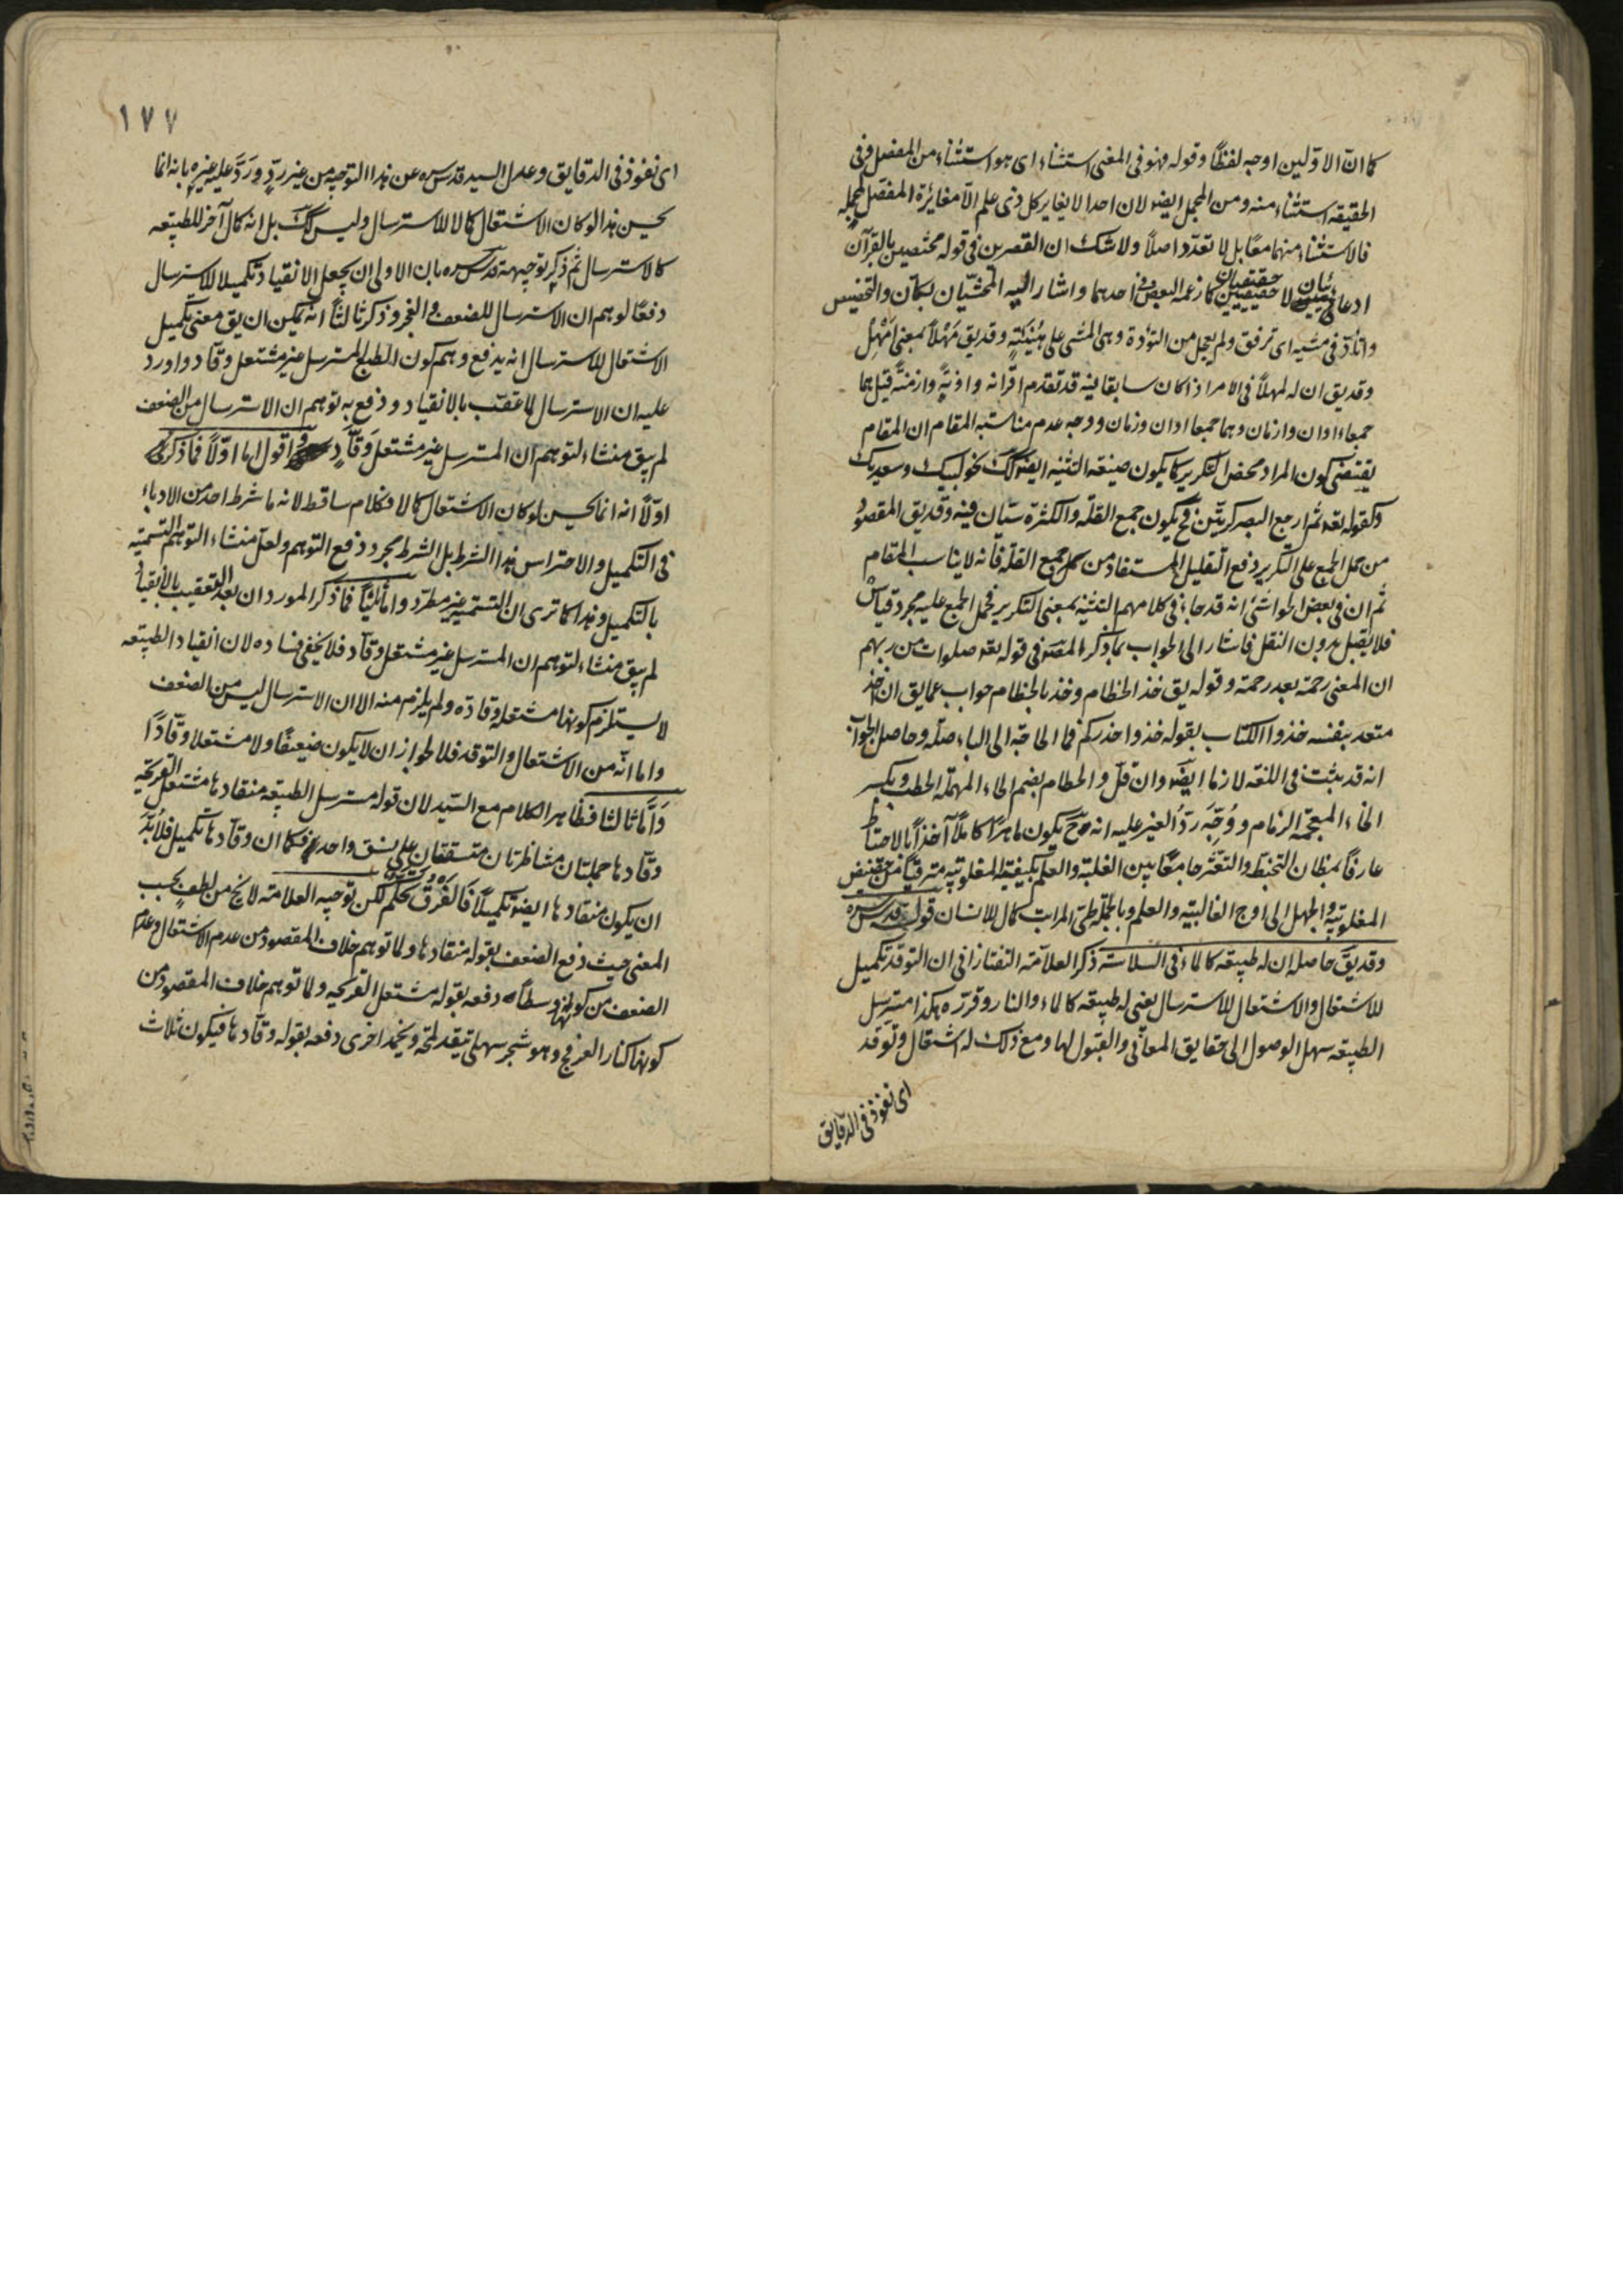 كما ان الاولين اوجه لفظاً وقوله فهو فى المعنى استثناء اى هو استثناء من المفصل وفى
الحقيقة استثناء منه ومن المجمل ايضا لان احدا لا يغاير كل ذى علم الا مغايرة المفصل لمجمله
فالاستثناء منهما معًا بل لا تعدد اصلاً ولا شك ان القصرين فى قوله مختصين بالقرآن
ادعائيان لا حقيقيان كما زعمه البعض فى احدهما واشار اليه المحشيان لمكان والتخصيص
واتأد فى مشيه اى ترفق ولم يعجل من التؤدة وهى المشى على هينته وقد يق مهلاً بمعنى امهل
وقد يق ان له لمهلاً فى الامر اذا كان سابقا فيه قد تقدم اقرانه واونة وازمنة قيل هما
جمعا اوان وازمان وهما جمعا اوان وزمان ووجه عدم مناسبة المقام ان المقام
يقتضى كون المراد محض التكرير كما يكون صيغة التثنيه ايضا كك نحو لبيك وسعديك
وكقوله تعه ثم ارجع البصر كرتين فح يكون جمع القلة والكثرة سيان فيه وقد يق المقصود
من حمل الجمع على التكرير دفع التقليل المستفاد من جمع القلة فانه لا يناسب المقام
ثم ان فى بعض الحواشى انه قد جاء فى كلامهم التثنية بمعنى التكرير فحمل الجمع عليه مجرد قياس
فلا يقبل بدون النقل فاشار الى الجواب بما ذكر المص فى قوله تعه صلوات من ربهم
ان المعنى رحمة بعد رحمة وقوله يق خذ الخطام وخذ بالخطام جواب عما يق ان اخذ
متعد بنفسه خذوا الكتاب بقوله خذوا حذركم فما الحاجة الى الباء صلة وحاصل الجواب
انه قد يثبت فى اللغة لازما ايضا وان قل والحطام بضم الحاء المهملة الحطب وبكسر
الخاء المعجمة الزمام ووجه رد الغير عليه انه ح يكون ماهرًا كاملاً آخذاً بالاحتياط
عارفاً بمظان التخبط والتعثر جامعًا بين الغلبة والعلم بكيفية المغلوبية مترقياً من حضيض
المغلوبية والجهل الى اوج الغالبية والعلم وبالجملة طى المراتب كمال للانسان قوله قدس سره
وقد يق حاصله ان له طبيعة كالماء فى السلاسة ذكر العلامة التفتازانى ان التوقد تكميل
للاشتعال والاشتعال للاسترسال يعنى له طبيعة كالماء والنار وقرره هكذا مسترسل
الطبيعه سهل الوصول الى حقايق المعانى والقبول لها ومع ذلك له اشتعال وتوقد
اى نفوذ فى الدقايق
١٧٧
اى نفوذ فى الدقايق وعدل السيد قدس سره عن هذا التوجيه من غير رد ورد عليه غيره بانه انما
يحسن هذا لو كان الاشتعال كمالا للاسترسال وليس كك بل انه كمال آخر للطبيعه
كالاسترسال ثم ذكر توجيهه قدس سره بان الاولى ان يجعل الانقياد تكميلا للاسترسال
دفعًا لوهم ان الاسترسال للضعف والعجز وذكر ثالثاً انه يمكن ان يق معنى تكميل
الاشتعال للاسترسال انه يدفع وهم كون الطبع المسترسل غير مشتعل وقاد واورد
عليه ان الاسترسال لما عقب بالانقياد ودفع به توهم ان الاسترسال من الضعف
لم يبق منشاء لتوهم ان المسترسل غير مشتعل وقاد واقول اما اولاً فما ذكره
اولاً انه انما يحسن لو كان الاشتعال كمالا فكلام ساقط لانه ما شرط احد من الادباء
فى التكميل والاحتراس هذا الشرط بل الشرط مجرد دفع التوهم ولعل منشاء التوهم التسمية
بالتكميل وهذا كما ترى ان التسمية غير مطرد واما ثانيًا فما ذكر المورد ان بعد التعقيب بالانقياد
لم يبق منشاء لتوهم ان المسترسل غير مشتعل وقاد فلا يخفى فساده لان انقياد الطبيعه
لا يستلزم كونها مشتعلة وقادة ولم يلزم منه الا ان الاسترسال ليس من الضعف
واما انه من الاشتعال والتوقد فلا لجواز ان لا يكون ضعيفًا ولا مشتعلا وقادًا
واما ثالثا فظاهر الكلام مع السيد لان قوله مسترسل الطبيعه منقادها مشتعل القريحه
وقادها جملتان متناظرتان متسقتان على نسق واحد فكما ان وقادها تكميل فلا بد
ان يكون منقادها ايضا تكميلاً فالفرق تحكم لكن توجيه العلامة لا يخ من لطف بحسب
المعنى حيث دفع الضعف بقوله منقادها ولما توهم خلاف المقصود من عدم الاشتعال وعدم
الضعف من كونها وسطاً دفعه بقوله مشتعل القريحه ولما توهم خلاف المقصود من
كونها كنار العرفج وهو شجر سهلى تتقد لمحة ويخمد اخرى دفعه بقوله وقادها فيكون ثلاث